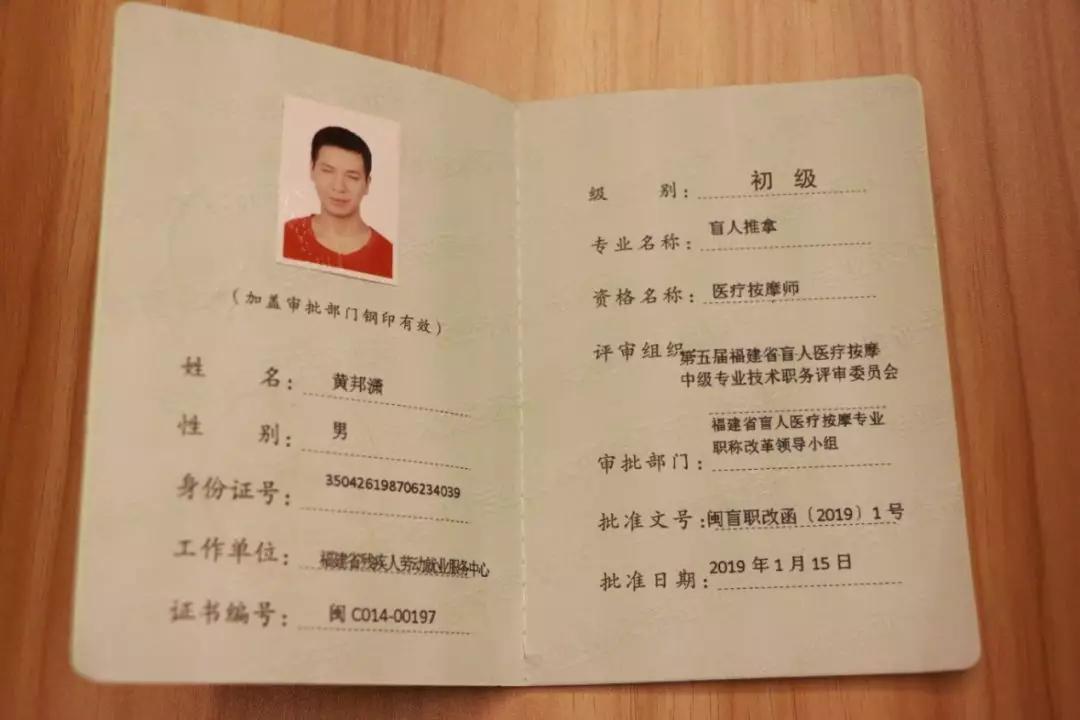 （加盖审批部门钢印有效）
姓 名： 黄邦潇
性 别： 男
身份证号： 350426198706234039
工作单位： 福建省残疾人劳动就业服务中心
证书编号： 闽 C014-00197
级 别： 初 级
专业名称： 盲人推拿
资格名称： 医疗按摩师
评审组织 第五届福建省盲人医疗按摩
中级专业技术职务评审委员会
福建省盲人医疗按摩专业
审批部门： 职称改革领导小组
批准文号：闽盲职改函〔2019〕1 号
批准日期： 2019 年 1 月 15 日